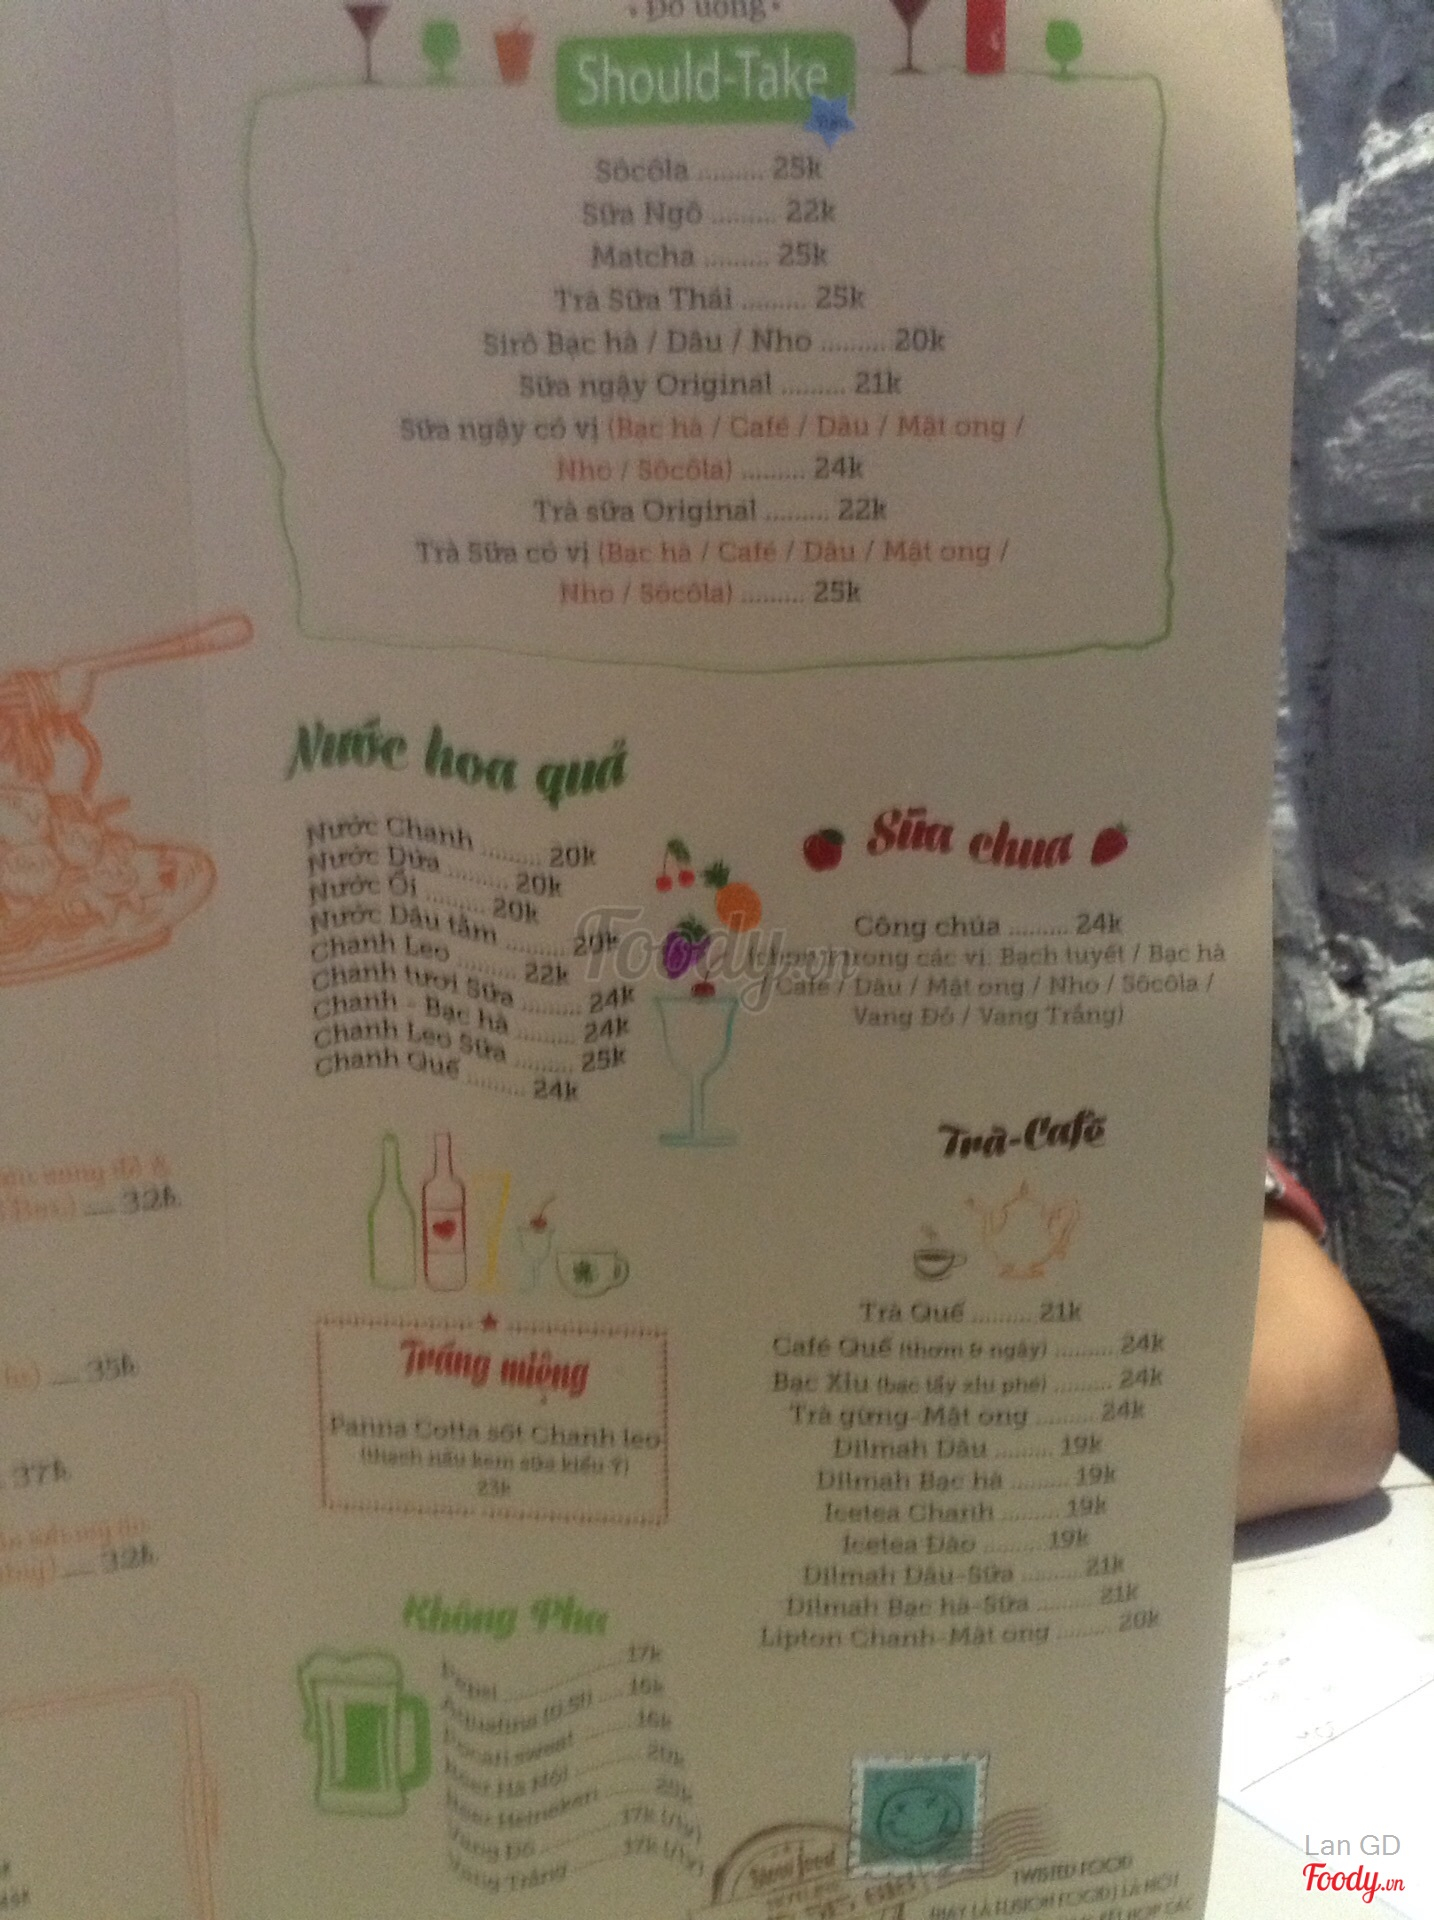 • Đồ uống •
Should-Take
Sôcôla ......... 25k
Sữa Ngô ......... 22k
Matcha ......... 25k
Trà Sữa Thái ......... 25k
Sirô Bạc hà / Dâu / Nho ......... 20k
Sữa ngậy Original ......... 21k
Sữa ngậy có vị (Bạc hà / Café / Dâu / Mật ong /
Nho / Sôcôla) ......... 24k
Trà sữa Original ......... 22k
Trà Sữa có vị (Bạc hà / Café / Dâu / Mật ong /
Nho / Sôcôla) ......... 25k
Nước hoa quả
Nước Chanh ......... 20k
Nước Dứa ......... 20k
Nước Ổi ......... 20k
Nước Dâu tằm ......... 20k
Chanh Leo ......... 22k
Chanh tươi Sữa ......... 24k
Chanh - Bạc hà ......... 24k
Chanh Leo Sữa ......... 25k
Chanh Quế ......... 24k
Sữa chua
Công chúa ......... 24k
trong các vị: Bạch tuyết / Bạc hà
/ Café / Dâu / Mật ong / Nho / Sôcôla /
Vang Đỏ / Vang Trắng)
Trà-Café
Trà Quế ......... 21k
Café Quế (thơm & ngậy) ......... 24k
Bạc Xỉu (bạc tẩy xỉu phé) ......... 24k
Trà gừng-Mật ong ......... 24k
Dilmah Dâu ......... 19k
Dilmah Bạc hà ......... 19k
Icetea Chanh ......... 19k
Icetea Đào ......... 19k
Dilmah Dâu-Sữa ......... 21k
Dilmah Bạc hà-Sữa ......... 21k
Lipton Chanh-Mật ong ......... 20k
Tráng miệng
Panna Cotta sốt Chanh leo
(thạch nấu kem sữa kiểu Ý)
23k
Không Pha
Pepsi ......... 17k
Aquafina (0.5l) ......... 16k
Pocari sweat ......... 16k
Beer Hà Nội ......... 20k
Beer Heineken ......... 20k
Vang Đỏ ......... 37k (/ly)
Vang Trắng ......... 37k (/ly)
32k
35k
37k
32k
TWISTED FOOD
(HAY LÀ FUSION FOOD) LÀ MỘT
Foody.vn
Lan GD
Foody.vn